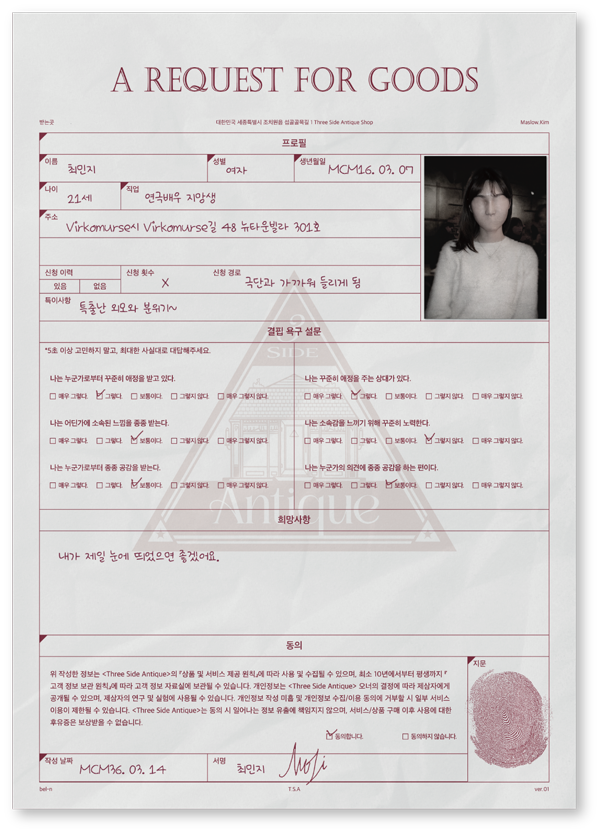 A REQUEST FOR GOODS
받는곳
대한민국 세종특별시 조치원읍 섭골골목길 | Three Side Antique Shop
Maslow.Kim
프로필
이름 최민지
성별 여자
생년월일 MCM16. 03. 07
나이 21세
직업 연극배우 지망생
주소 Virkomurse시 Virkomurse길 48 뉴타운빌라 301호
신청 이력 있음 없음
신청 횟수 X
신청 경로 극단과 가까워 들리게 됨
특이사항 특출난 외모와 분위기~
결핍 욕구 설문
*5초 이상 고민하지 말고, 최대한 사실대로 대답해주세요.
나는 누군가로부터 꾸준히 애정을 받고 있다.
매우 그렇다. 그렇다. 보통이다. 그렇지 않다. 매우 그렇지 않다.
나는 꾸준히 애정을 주는 상대가 있다.
매우 그렇다. 그렇다. 보통이다. 그렇지 않다. 매우 그렇지 않다.
나는 어딘가에 소속된 느낌을 종종 받는다.
매우 그렇다. 그렇다. 보통이다. 그렇지 않다. 매우 그렇지 않다.
나는 소속감을 느끼기 위해 꾸준히 노력한다.
매우 그렇다. 그렇다. 보통이다. 그렇지 않다. 매우 그렇지 않다.
나는 누군가로부터 종종 공감을 받는다.
매우 그렇다. 그렇다. 보통이다. 그렇지 않다. 매우 그렇지 않다.
나는 누군가의 의견에 종종 공감을 하는 편이다.
매우 그렇다. 그렇다. 보통이다. 그렇지 않다. 매우 그렇지 않다.
3
SIDE
Antique
희망사항
내가 제일 눈에 띄었으면 좋겠어요.
동의
위 작성한 정보는 <Three Side Antique>의 『상품 및 서비스 제공 원칙』에 따라 사용 및 수집될 수 있으며, 최소 10년에서부터 평생까지 『
고객 정보 보관 원칙』에 따라 고객 정보 자료실에 보관될 수 있습니다. 개인정보는 <Three Side Antique> 오너의 결정에 따라 제삼자에게
공개될 수 있으며, 제삼자의 연구 및 실험에 사용될 수 있습니다. 개인정보 작성 미흡 및 개인정보 수집/이용 동의에 거부할 시 일부 서비스
이용이 제한될 수 있습니다. <Three Side Antique>는 동의 시 일어나는 정보 유출에 책임지지 않으며, 서비스/상품 구매 이후 사용에 대한
후유증은 보상받을 수 없습니다.
동의합니다. 동의하지 않습니다.
지문
작성 날짜 MCM36. 03. 14
서명 최민지
bel-n
T.S.A
ver.01